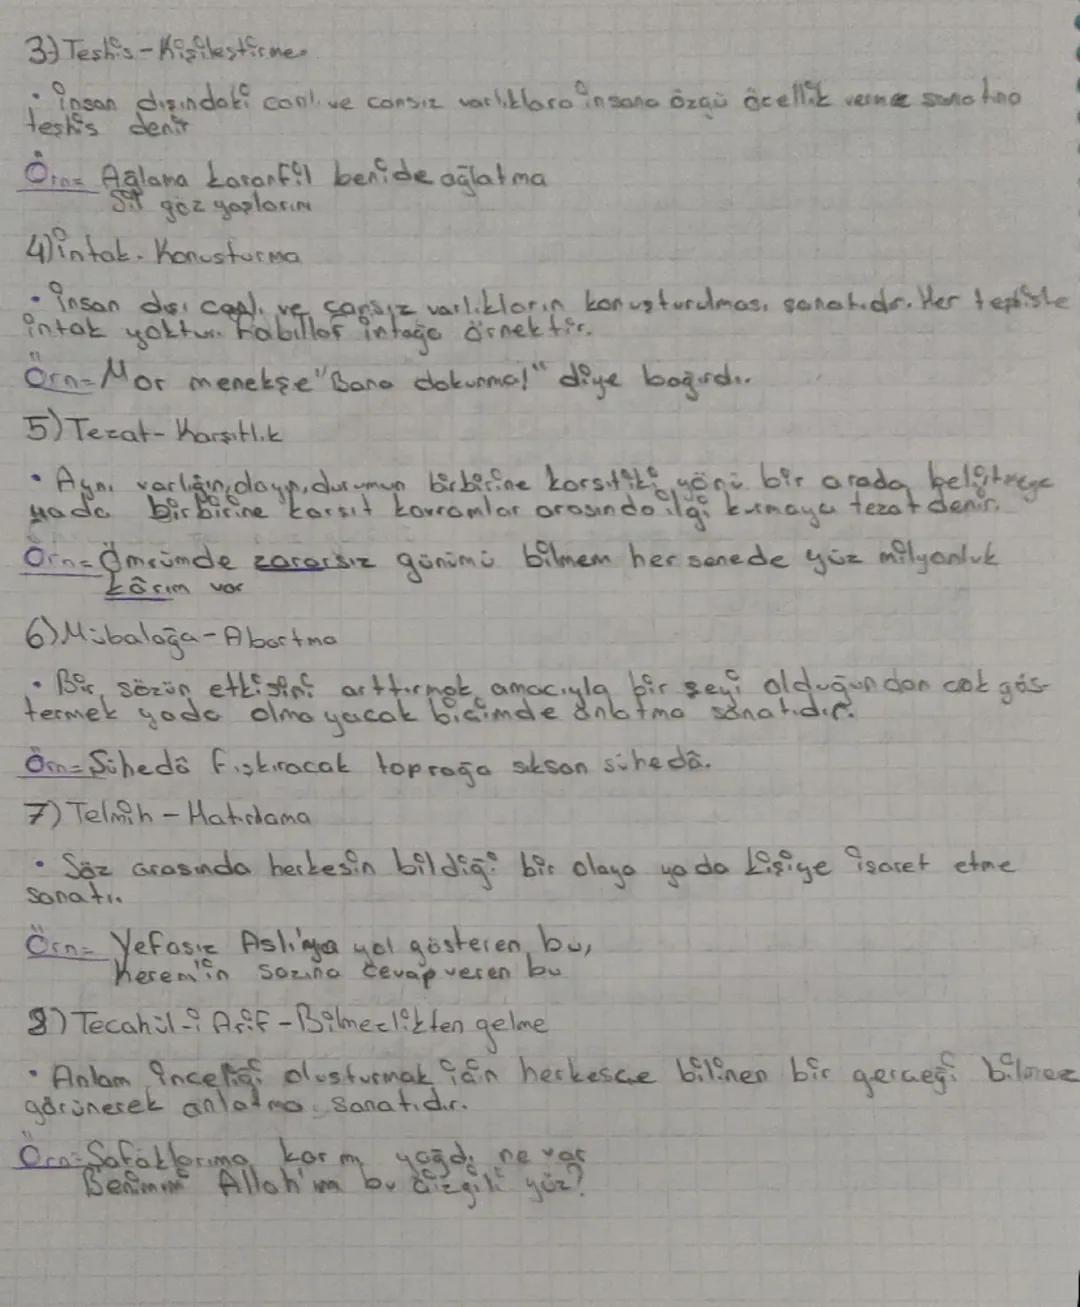 3) Teshis - Kişileştirme
• İnsan dışındaki canlı ve cansız varlıklara insana özgü özellik verme sanatına
teşhis denir
Örn= Ağlama karanfil benide ağlatma
Sil göz yaşlarını
4) İntak - Konusturma
• İnsan dışı canlı ve cansız varlıkların konuşturulması sanatıdır. Her teşhiste
intak yoktur. Fabıllar intağa örnektir.
Örn= Mor menekşe "Bana dokunma!" diye bağırdı.
5) Tezat - Karşıtlık
• Aynı varlığın, olayın, durumun birbirine karşıt iki yönü bir arada belirtmeye
yada birbirine karşıt kavramlar arasında ilgi kurmaya tezat denir.
Örn= Ömrümde zararsız günümü bilmem her senede yüz milyonluk
kârım var
6) Mübalağa - Abartma
• Bir sözün etkisini arttırmak amacıyla bir şeyi olduğundan çok gös-
termek yada olmayacak biçimde anlatma sanatıdır.
Örn= Şühedâ fışkıracak toprağa sıksan şühedâ.
7) Telmih - Hatırlama
• Söz arasında herkesin bildiği bir olaya yada kişiye işaret etme
sanatı.
Örn= Vefasız Aslı'ya yol gösteren bu,
Kerem'in sazına cevap veren bu
8) Tecahül-i Arif - Bilmezlikten gelme
• Anlam inceliği oluşturmak için herkesçe bilinen bir gerçeği bilmez
görünerek anlatma sanatıdır.
Örn= Şafaklarıma kar mı yağdı ne var
Benimmi Allah'ım bu çizgili yüz?